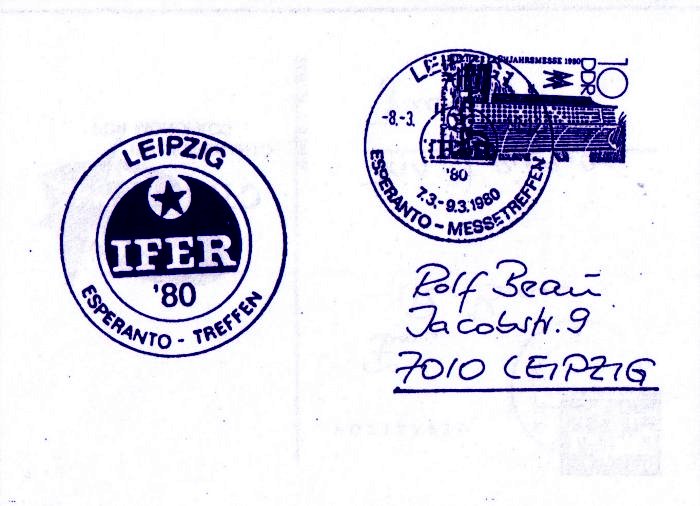 LEIPZIG
IFER
'80
ESPERANTO - TREFFEN
FRÜHJAHRSMESSE 1980
10
DDR
-8.-3.
'80
7.3.-9.3.1980
ESPERANTO - MESSETREFFEN
Rolf Beau
Jacobstr. 9
7010 LEIPZIG